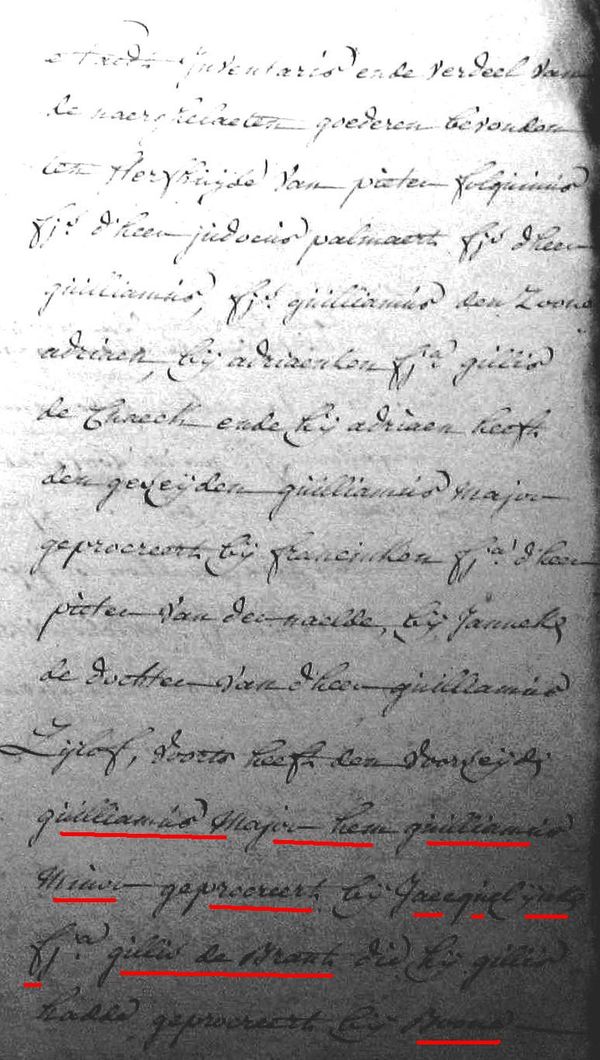 Inventaris ende verdeel van
de naerghelaeten goederen bevonden
ten sterfhuijse van pieter folquinus
fs. d'heer judocus palmaert fs. d'heer
guilliamus, fs. guilliamus den zoone
adriaen, bij adriaenken fa. gillis
de ende hij adriaen heeft
den geseijden guilliamus Major
geprocreert bij francinken fa. d'heer
pieter van der naelde, bij Janneke
de dochter van d'heer guilliamus
Zijlof, voorts heeft den voorseijde
guilliamus Major hem guilliamus
Minor geprocreert bij Jacquelijnke
fa. gillis de Brant die hij gillis
hadde geprocreert bij